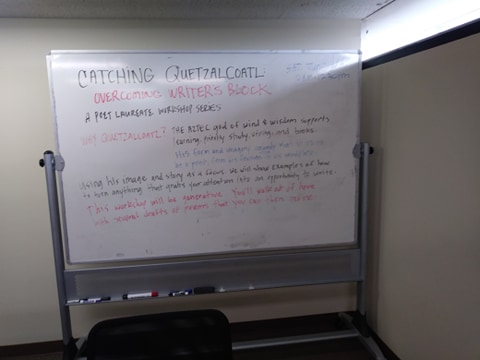 CATCHING QUETZALCOATL:
OVERCOMING WRITER'S BLOCK
A POET LAUREATE WORKSHOP SERIES
WHY QUETZALCOATL? THE AZTEC god of wind & wisdom supports
learning, poetry, study, and books.
His form and imagery
Using his image and story as a focus, we will show examples of how
to turn anything that grabs your attention into an opportunity to write.
This workshop will be generative. You'll walk out of here
with several drafts of poems that you can then refine.